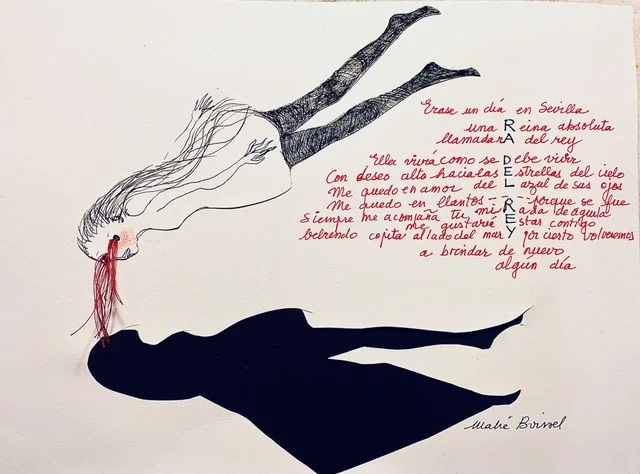 Erase un día en Sevilla
una Reina absoluta
llamadarA del rey
Ella vivrá como se Debe vivir
Con deseo alto hacia las Estrellas del cielo
Me quedo en amor deL azul de sus ojos
Me quedo en llantos - - - - porque se fue
Siempre me acomaña tu miRada de águila
me gustaría Estas contigo
bebiendo copita al lado del mar Y por cierto volveremos
a brindar de nuevo
algún día
Mahé Boissel